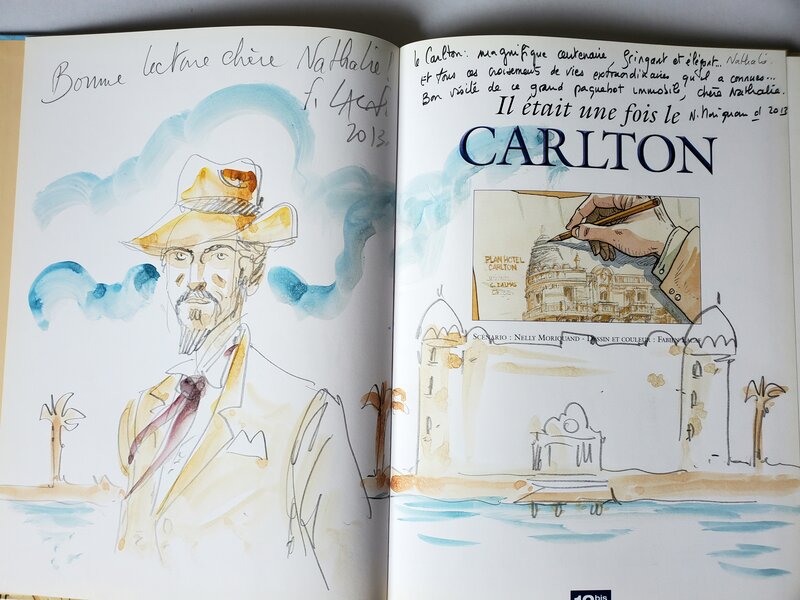 Bonne lecture chère Nathalie !
F. LACAF.
2013.
le Carlton : magnifique centenaire, fringant et élégant... Nathalie.
Et tous ces croisements de vies extraordinaires qu'il a connues...
Bon visite de ce grand paquebot immobile, chère Nathalie.
N. Moriquand 2013
Il était une fois le
CARLTON
PLAN HOTEL
CARLTON
C. DALMAS
SCENARIO : NELLY MORIQUAND - DESSIN ET COULEUR : FABIEN LACAF
12bis